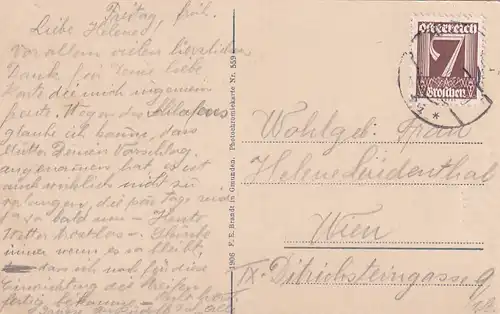 Freitag, früh.
Liebe Helene!
Vor allem vielen herzlichen
Dank für Deine liebe
Karte die mich ungemein
freute. Wegen des
glaube ich kaum, dass
Mutter Deinen Vorschlag
angenommen hat, es ist
auch wirklich nicht zu
verlangen, die paar Tage sind
ja so bald um – Heute
Wetter trostlos –
immer wenn es so bleibt,
dass ich noch für diese
Einrichtung des
fertig bekomme –
1906 F. E. Brandt in Gmunden. Photochromiekarte Nr. 559
Österreich
7
Groschen
Wohlgeb. Frau
Helene Leidenthal
Wien
IX. Dietrichsteingasse 9